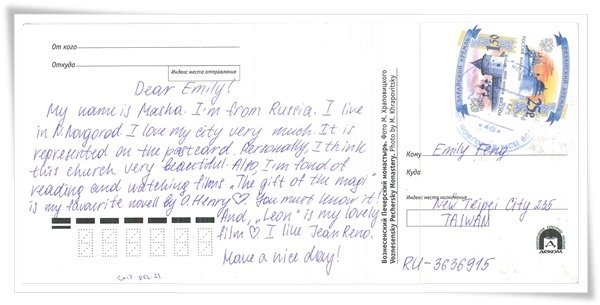 От кого
Откуда
Индекс места отправления
Dear Emily!
My name is Masha. I'm from Russia. I live
in N.Novgorod. I love my city very much. It is
represented on the postcard. Personally, I think
this church very beautiful. Also, I'm fond of
reading and watching films. „The gift of the magi"
is my favourite novell by O.Henry♡. You must know it!
And, „Leon" is my lovely
film♡. I like Jean Reno.
Have a nice day!
Вознесенский Печерский монастырь. Фото М. Храповицкого
Voznesensky Pechersky Monastery. Photo by M. Khrapovitsky
РОССИЯ
1.50
25р
ЗАРАЙСКИЙ КРЕМЛЬ
Кому
Emily Feng
Куда
Индекс места назначения
New Taipei City 235
TAIWAN
RU-3636915